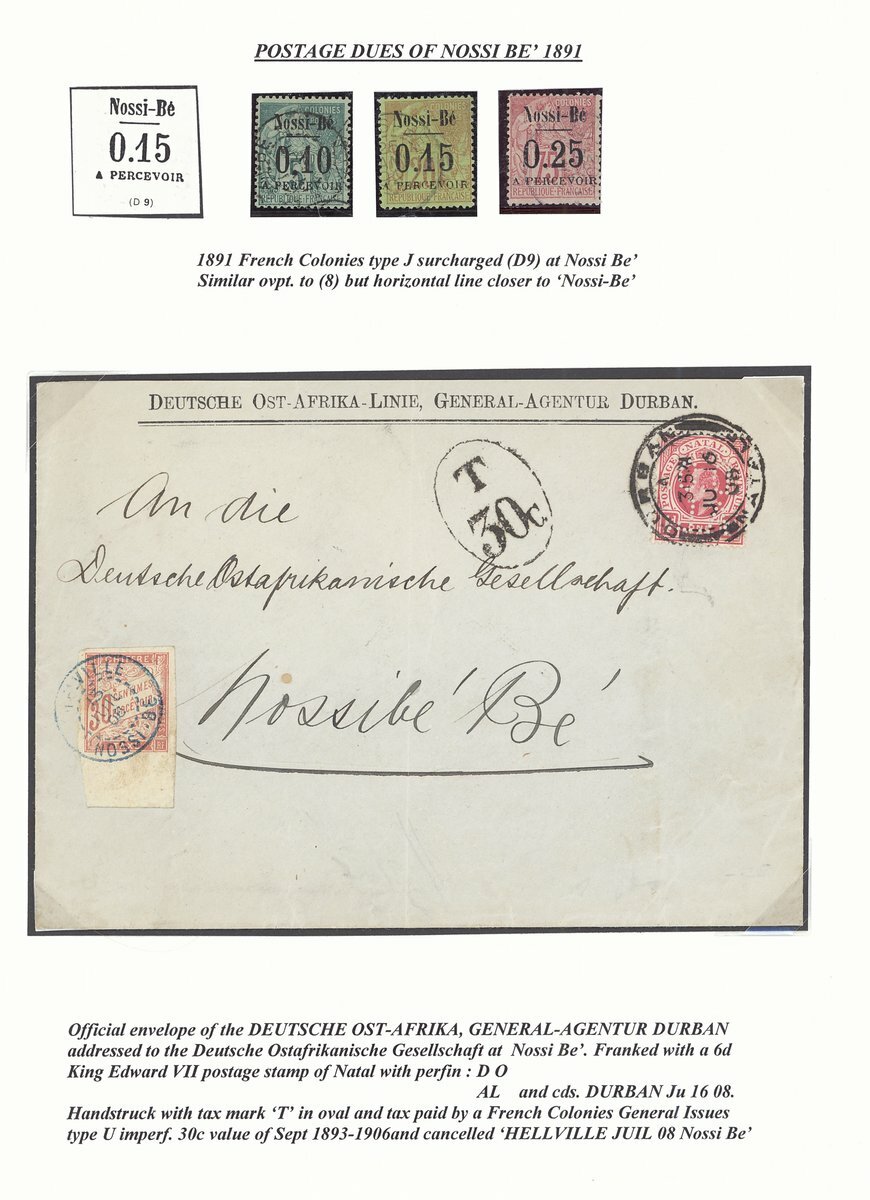 POSTAGE DUES OF NOSSI BE’ 1891
Nossi-Bé
0.15
A PERCEVOIR
(D 9)
COLONIES
Nossi-Bé
0.10
A PERCEVOIR
REPUBLIQUE FRANÇAISE
COLONIES
Nossi-Bé
0.15
A PERCEVOIR
REPUBLIQUE FRANÇAISE
COLONIES
Nossi-Bé
0.25
A PERCEVOIR
REPUBLIQUE FRANÇAISE
1891 French Colonies type J surcharged (D9) at Nossi Be’
Similar ovpt. to (8) but horizontal line closer to ‘Nossi-Be’
DEUTSCHE OST-AFRIKA-LINIE, GENERAL-AGENTUR DURBAN.
T
30c
DURBAN
JU 16
08
POSTAGE NATAL
An die
Deutsche Ostafrikanische Gesellschaft.
Nossibé Bé
CHIFFRE
30
CENTIMES
A PERCEVOIR
NOSSI-BE
Official envelope of the DEUTSCHE OST-AFRIKA, GENERAL-AGENTUR DURBAN
addressed to the Deutsche Ostafrikanische Gesellschaft at Nossi Be’. Franked with a 6d
King Edward VII postage stamp of Natal with perfin : D O
AL and cds. DURBAN Ju 16 08.
Handstruck with tax mark ‘T’ in oval and tax paid by a French Colonies General Issues
type U imperf. 30c value of Sept 1893-1906and cancelled ‘HELLVILLE JUIL 08 Nossi Be’